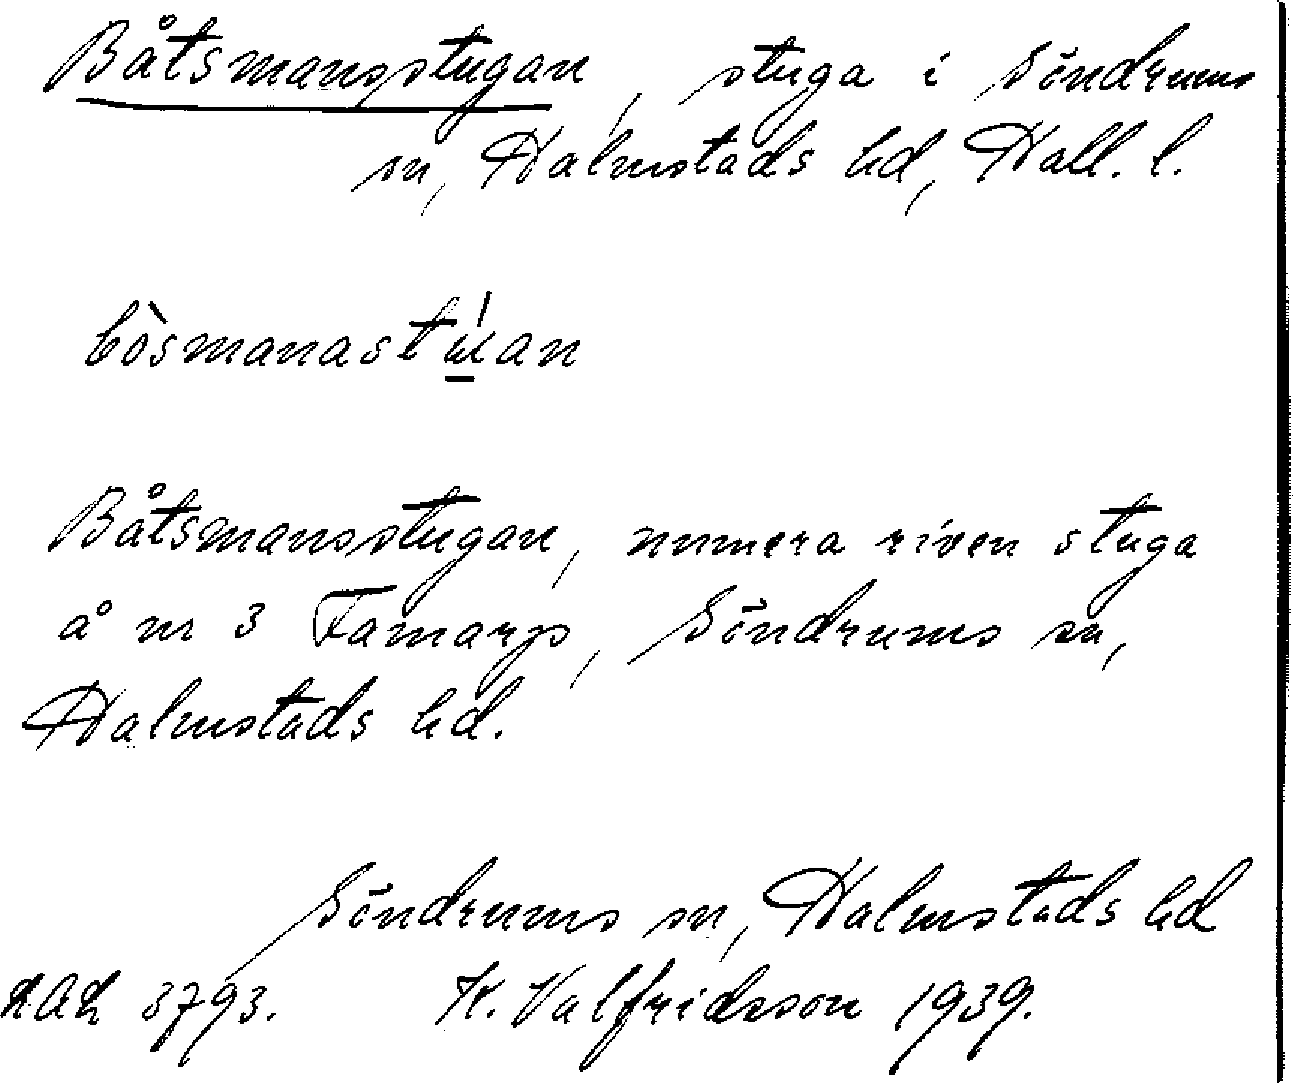 Båtsmansstugan, stuga i Söndrums
sn, Halmstads hd, Hall. l.
bòsmanastú̲an
Båtsmansstugan, numera riven stuga
å nr 3 Famarp, Söndrums sn,
Halmstads hd.
Söndrums sn, Halmstads hd
3793. K. Valfridsson 1939.